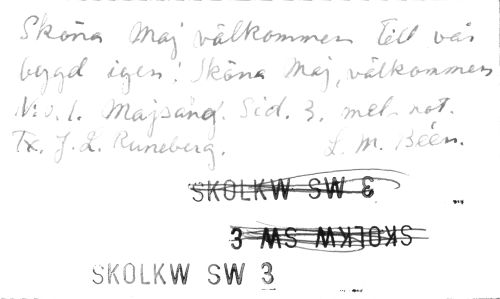 Sköna Maj välkommen till vår
bygd igen! Sköna Maj, välkommen
N:o 1. Majsång. Sid. 3. mel. not.
Tx. J. L. Runeberg. L. M. Béen.
SKOLKW SW 3
SKOLKW SW 3
SKOLKW SW 3